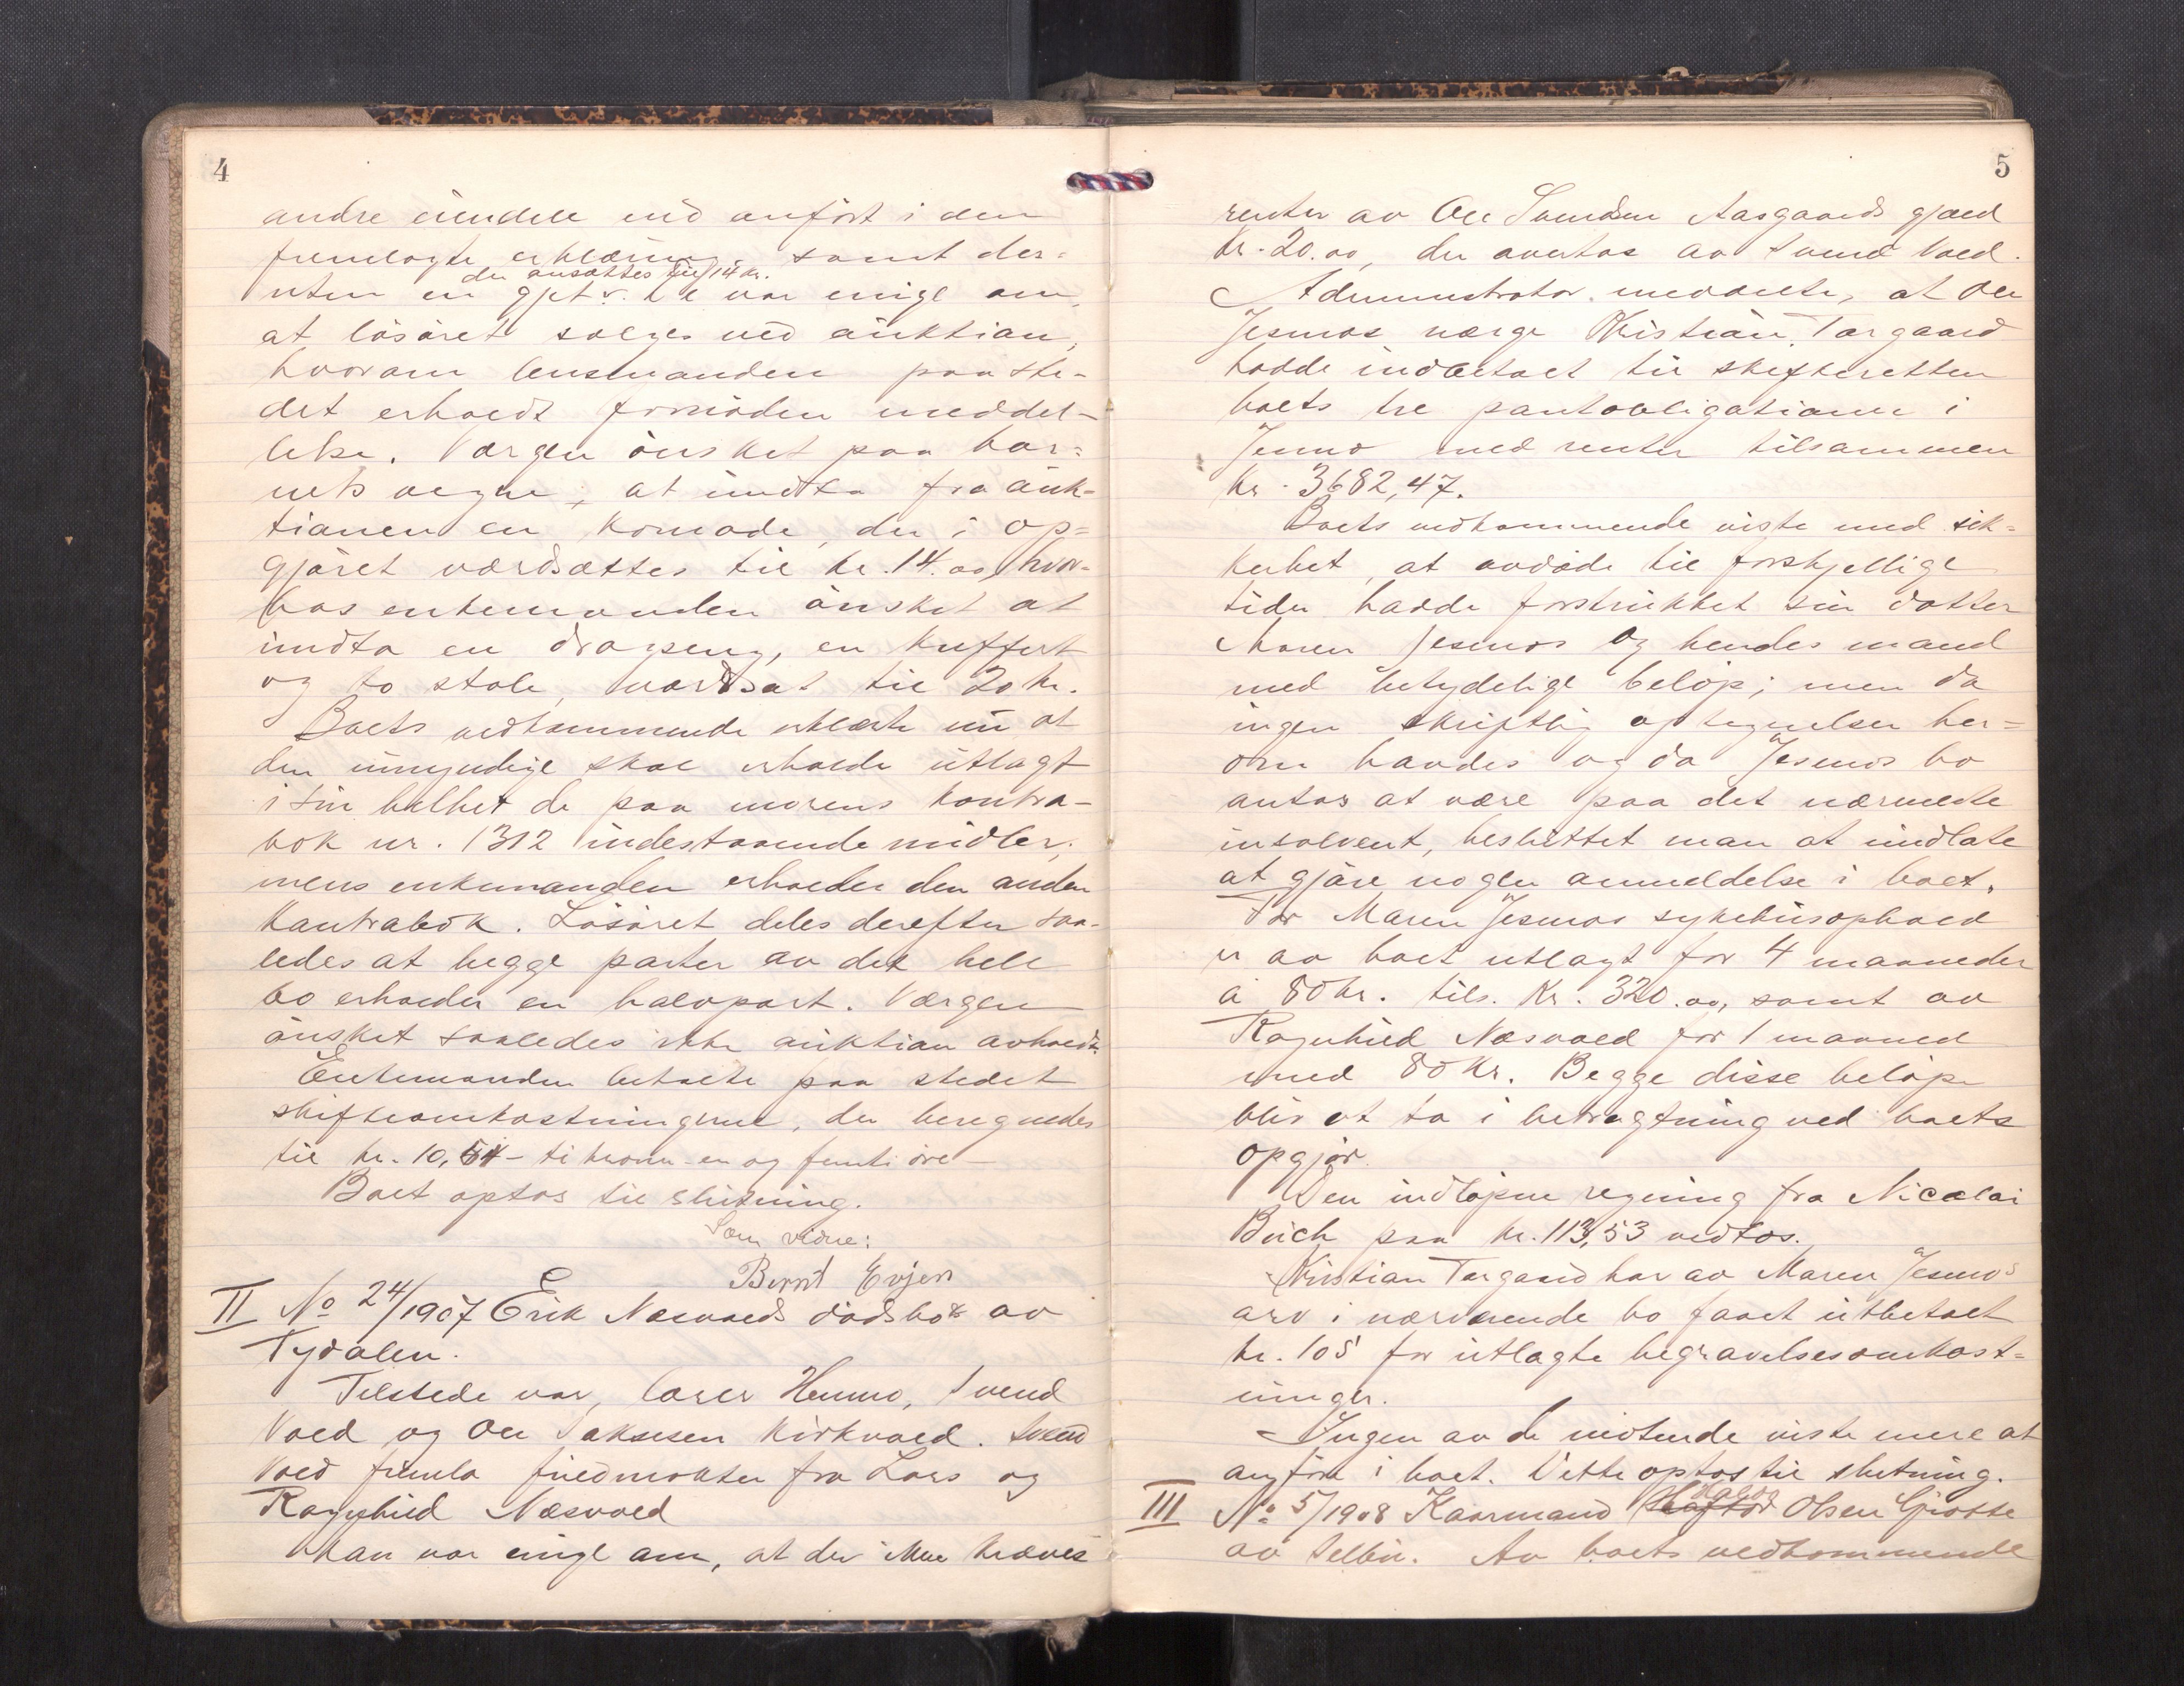 4
andre eiendele end anfört i den
fremlagte erklæring, samt des-
der ansattes til 14 kr.
uten en gjet. De var enige om,
at lösöret sælges ved auktion,
hvorom lensmanden paa ste-
det erholdt fornöden meddel-
else. Værgen önsket paa bar-
nets vegne, at undta fra auk-
tionen en komode, der i op-
gjöret værdsættes til kr. 14.00, hvor-
hos enkemanden önsket at
undta en dragseng, en kuffert
og to stole, værdsat til 20 kr.
Boets vedkommende erklærte nu at
den umyndige skal erholde utlagt
i sin helhet de paa morens kontra-
bok nr. 1312 indestaaende midler,
mens enkemanden erholder den anden
kontrabok. Lösöret deles derefter saa-
ledes at begge parter av det hele
bo erholder en halvpart. Værgen
önsket saaledes ikke auktion avholdt.
Enkemanden betalte paa stedet
skifteomkostningerne, der beregnedes
til kr. 10,51 - ti kroner en og femti öre -
Boet optos til slutning.
Som vidne:
Bernt Evjen
II No 24/1907 Erik Næsvolds dödsbo av
Tydalen.
Tilstede var, Lars Henmo, Svend
Vold og Ole Saksesen Kirkvold. Svend
Vold fremla fuldmakter fra Lars og
Ragnhild Næsvold
Man var enige om, at der ikke kræves
5
renter av Ole Svendsen Aasgaards gjæld
kr. 20.00, der overtas av Svend Vold.
Administrator meddelte, at Ole
Jesmos værge Kristian Torgaard
hadde indbetalt til skifteretten
boets tre pantobligationer i
Jesmo med renter tilsammen
kr. 3682,47.
Boets vedkommende viste med sik-
kerhet, at avdöde til forskjellige
tider hadde forstrukket sin datter
Maren Jesmos og hendes mand
med betydelige belöp; men da
ingen skriftlig optegnelser her-
om haves og da Jesmos bo
antas at være paa det nærmeste
insolvent, besluttet man at undlate
at gjöre nogen anmeldelse i boet.
For Maren Jesmos sykehusophold
er av boet utlagt for 4 maaneder
a 80 kr. tils. Kr. 320.00, samt av
Ragnhild Næsvold for 1 maaned
med 80 Kr. Begge disse belöp
blir at ta i betragtning ved boets
opgjör.
Den indlöpne regning fra Nicolai
Buch paa kr. 113,53 vedtos.
Kristian Torgaard har av Maren Jesmos
arv i nærværende bo faaet utbetalt
kr. 105 for utlagte begravelsesomkost-
ninger.
Ingen av de mötende viste mere at
anföre i boet. Dette optos til slutning.
III No 5/1908 Kaarmand Halvor Olsen Grötte
av Selbu. Av boets vedkommende